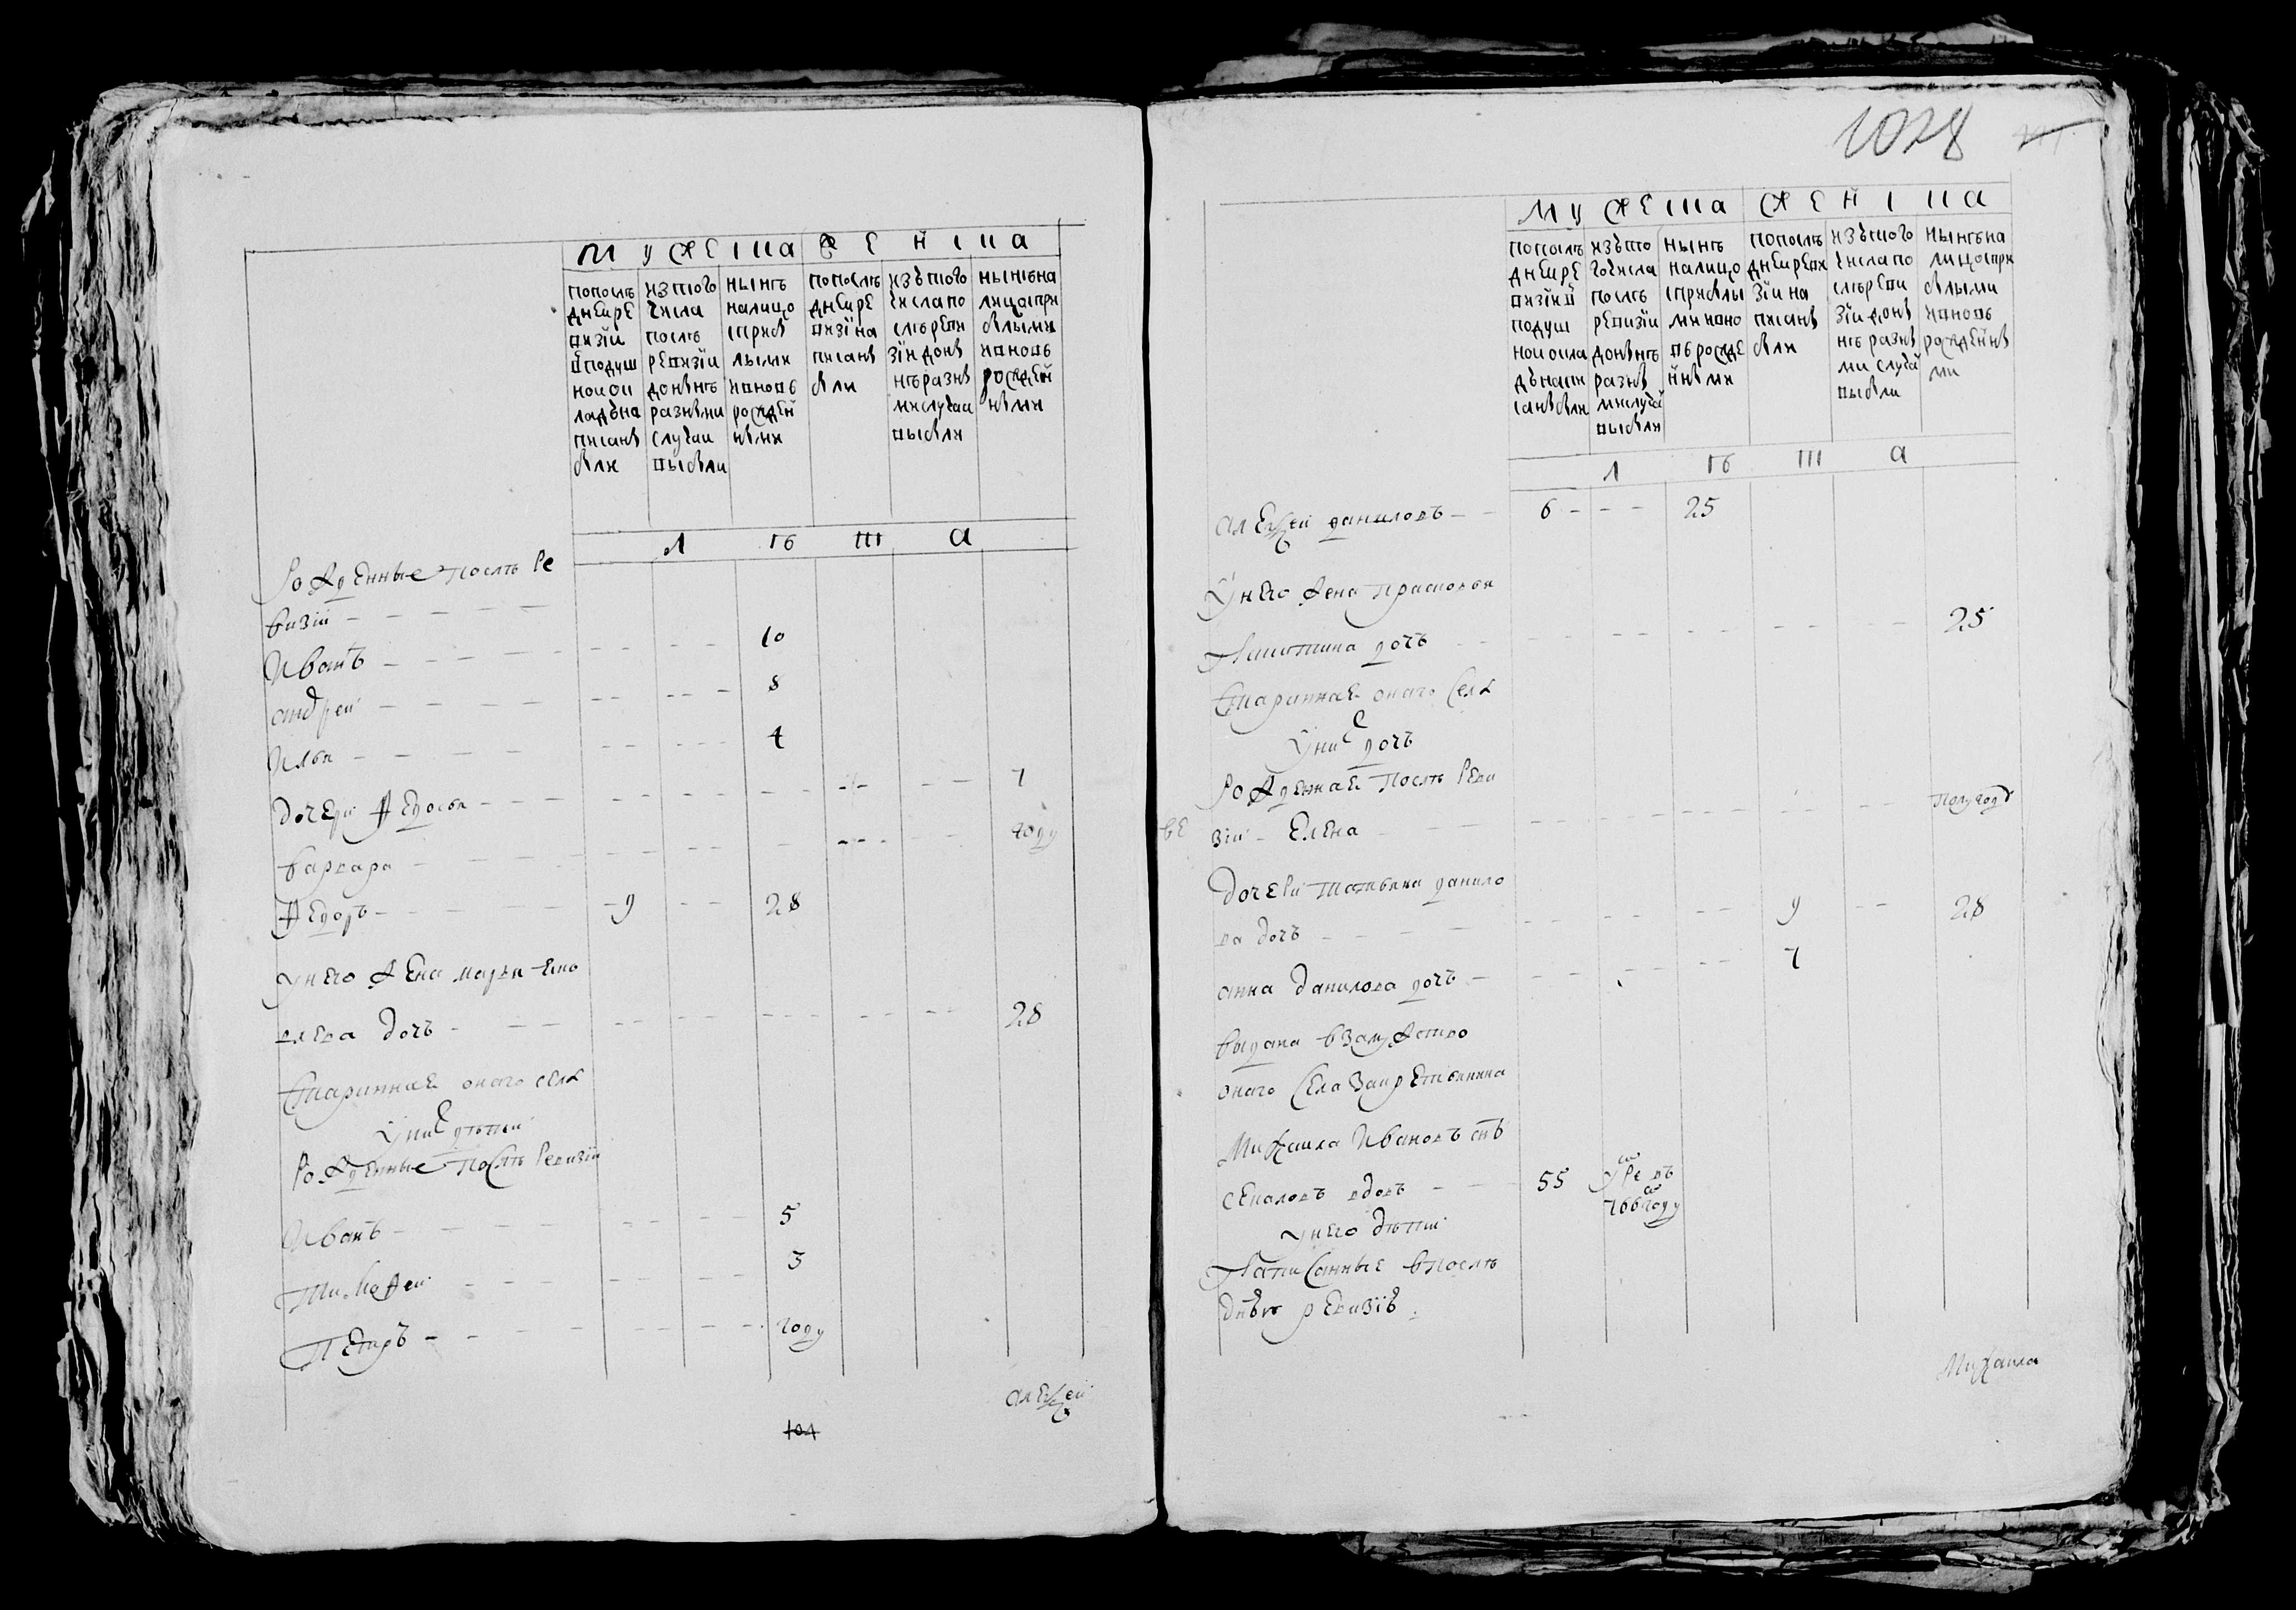 му жеска жен ска
попослѣ
днеи ре
визіи
в подуш
нои ок
ладъ на
писаны
были
изтого
числа
послѣ
ревизіи
донынѣ
разными
случаи
выбыли
нынѣ
налицо
сприбы
лыми
ивновь
рожден
ными
попослѣ
днеи ре
визіи на
писаны
были
изътого
числа по
слѣ реви
зіи доны
нѣ разны
ми случаи
выбыли
нынѣ на
лицо спри
былыми
ивновь
рожден
ными
л ѣ т а
Рожденные послѣ ре
визіи
Иванъ 10
андреи 8
Илья 4
дочери Ѳедосья 7
варвара году
Ѳедоръ 9 28
унего жена марья
дочь 28
старинная оного села
унихъ дѣти
Рожденные послѣ ревизіи
Иванъ 5
Тимоѳеи 3
Петръ году
алеѯеи
104
1028
му жеска жен ска
попослѣ
днеи ре
визіи в
подуш
нои окла
дъ напи
саны были
изъто
го числа
послѣ
ревизіи
донынѣ
разны
ми случаи
выбыли
нынѣ
налицо
сприбы
ми ивно
вь рожде
нными
попослѣ
днеи реви
зіи на
писаны
были
изътого
числа по
слѣ реви
зіи доны
нѣ разны
ми случаи
выбыли
нынѣ на
лицо спри
былыми
ивновь
рожденны
ми
л ѣ т а
алеѯеи даниловъ 6 25
Унего жена прасковья
Никитина дочь 25
старинная оного села
Унихъ дочь
Рожденная послѣ реви
зіи Елена полугоду
дочери татьяна данило
ва дочь 9 28
анна данилова дочь 7
выдана взамужство
оного села за крестьянина
Михаила Ивановъ снъ
вдовъ 55 умре въ
766 году
унего дѣти
Написанные впослѣ
днюю ревизію
Михаила